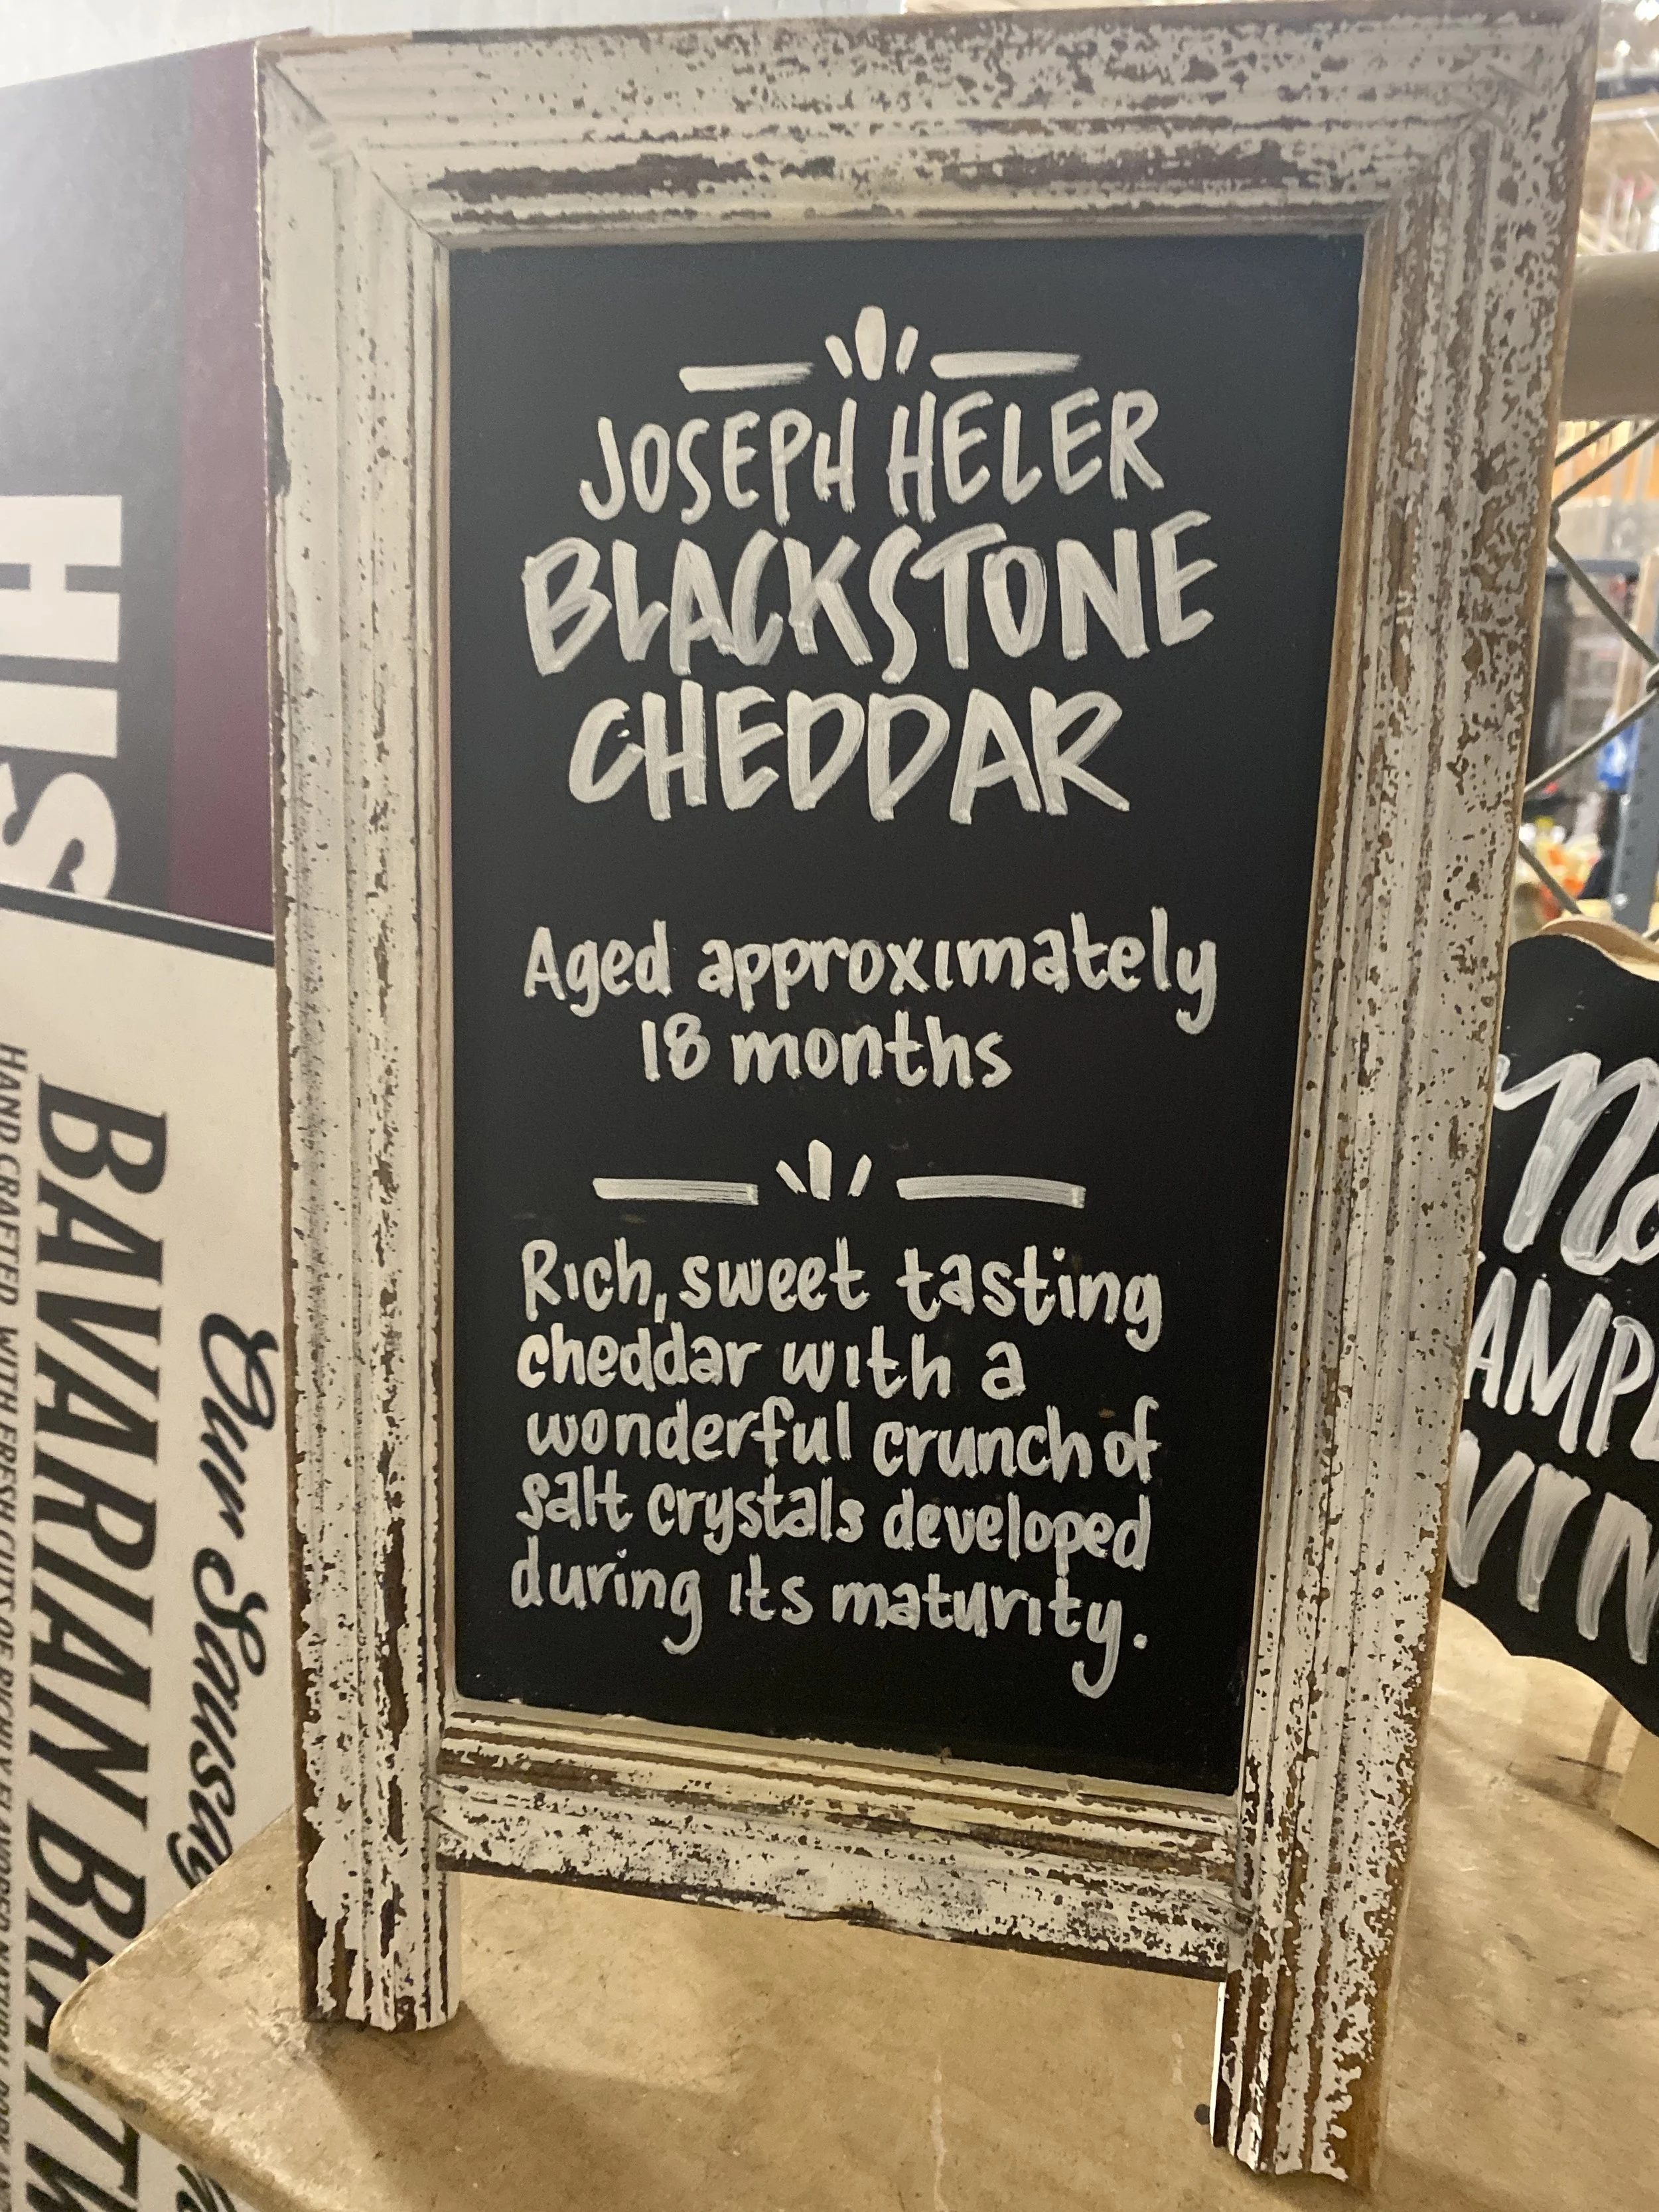 JOSEPH HELER
BLACKSTONE
CHEDDAR
Aged approximately
18 months
Rich, sweet tasting
cheddar with a
wonderful crunch of
salt crystals developed
during its maturity.
HIS
Our Sausag
BAVARIAN BRATW
HAND CRAFTED WITH FRESH CUTS OF RICHLY FLAVORED NATURAL PORK AND
No
AMPL